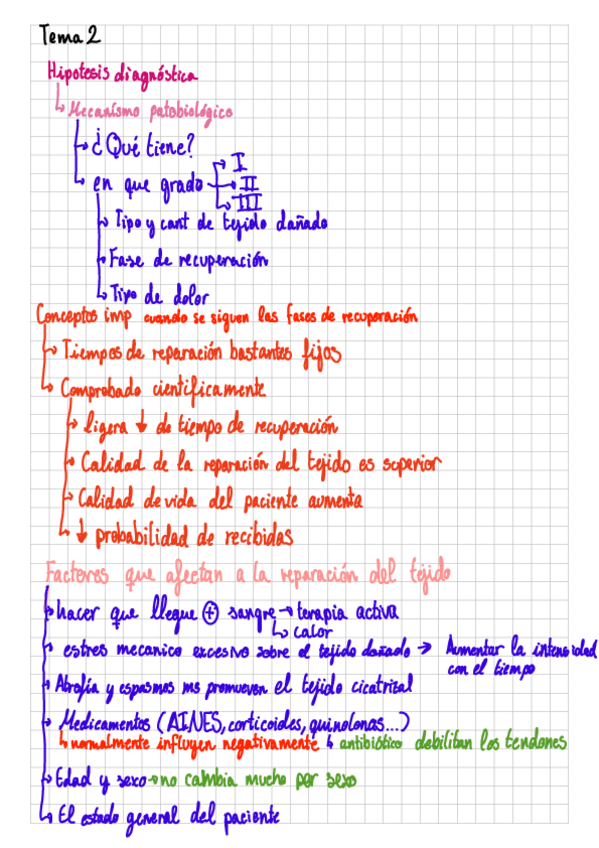 Tema 2
Hipotesis diagnóstica
↳ Mecanismo patobiológico
↳ ¿Qué tiene?
↳ en que grado → I
→ II
↳ III
↳ Tipo y cant de tejido dañado
↳ Fase de recuperación
↳ Tipo de dolor
Conceptos imp cuando se siguen las fases de recuperación
↳ Tiempos de reparación bastantes fijos
↳ Comprobado cientificamente
↳ ligera ↓ de tiempo de recuperación
↳ Calidad de la reparación del tejido es superior
↳ Calidad de vida del paciente aumenta
↳ ↓ probabilidad de recibidas
Factores que afectan a la reparación del tejido
↳ hacer que llegue ⊕ sangre → terapia activa
↳ calor
↳ estres mecanico excesivo sobre el tejido dañado → Aumentar la intensidad
con el tiempo
↳ Atrofia y espasmos ms promueven el tejido cicatrical
↳ Medicamentos (AINES, corticoides, quinolonas...)
↳ normalmente influyen negativamente ↳ antibiótico debilitan los tendones
↳ Edad y sexo → no cambia mucho por sexo
↳ El estado general del paciente